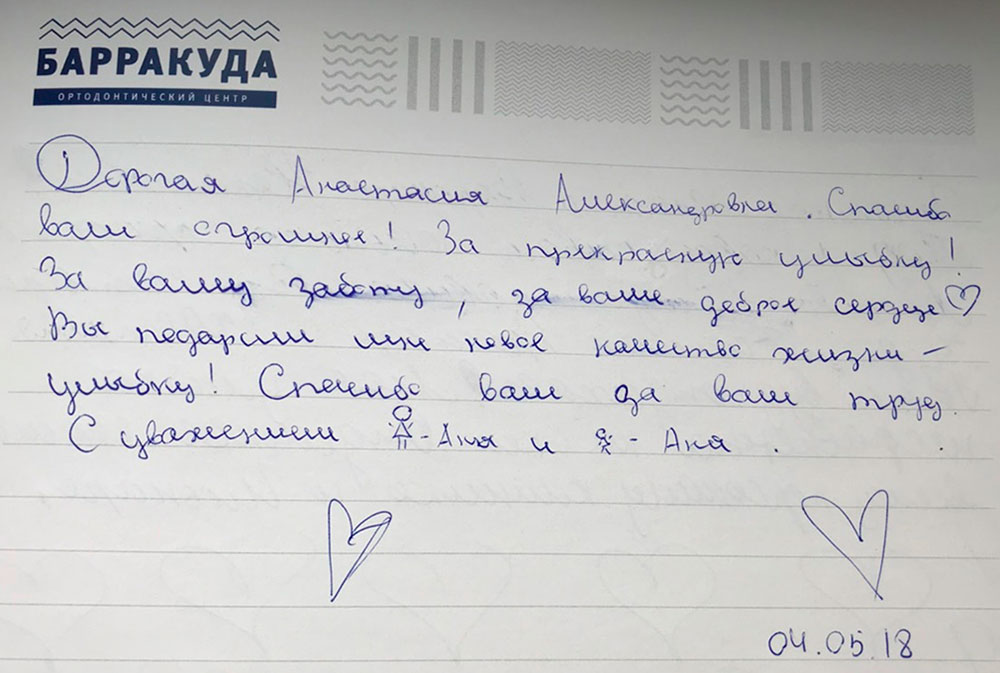 БАРРАКУДА
ОРТОДОНТИЧЕСКИЙ ЦЕНТР
Дорогая Анастасия Александровна. Спасибо
вам огромное! За прекрасную улыбку!
За вашу заботу, за ваше доброе сердце♡
Вы подарили мне новое качество жизни –
улыбку! Спасибо вам за ваш труд.
С уважением - Аня и - Аня.
04.05.18